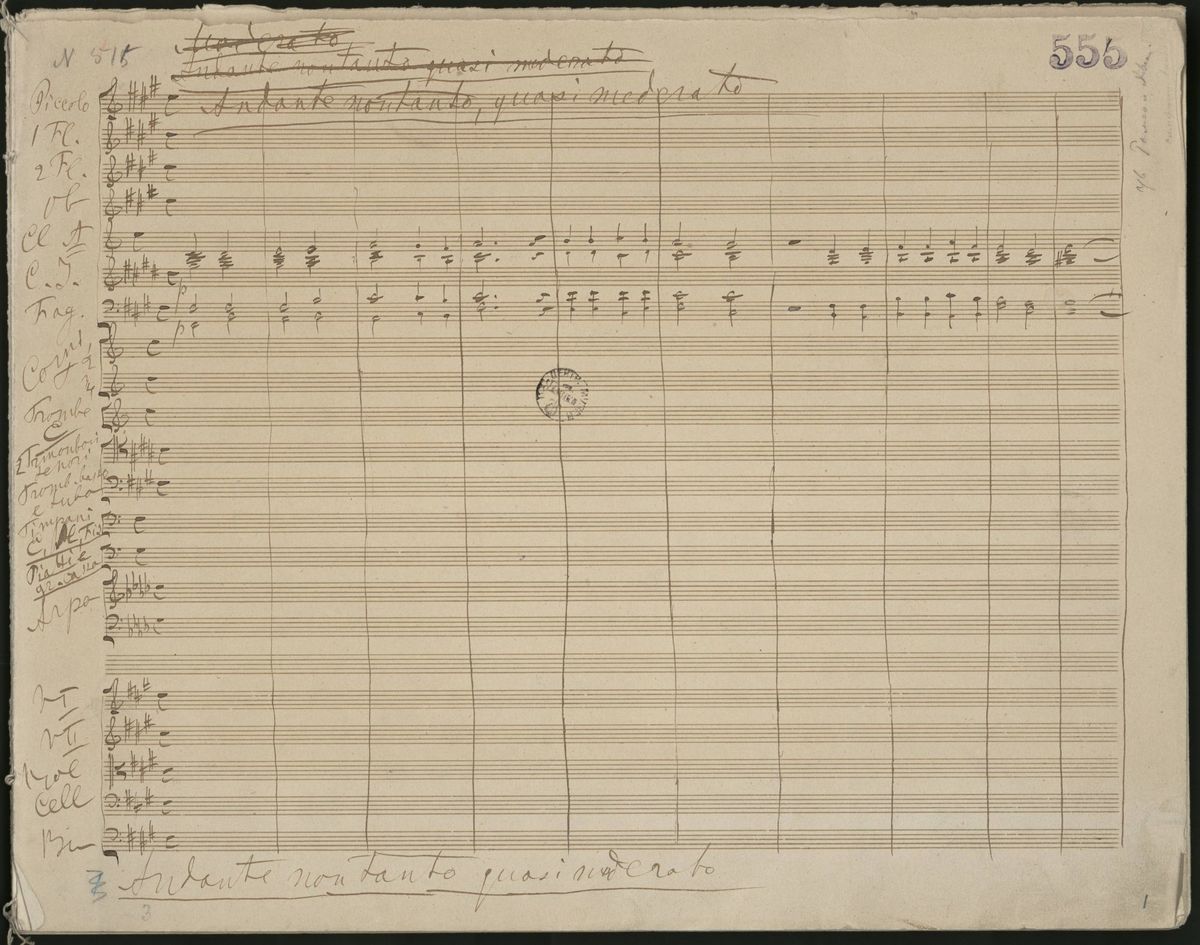 N 515
Moderato
Andante non tanto quasi moderato
Andante non tanto, quasi moderato
555
Piccolo
1 Fl.
2 Fl.
Ob
Cl A
C. I.
Fag.
Corni 1, 2
3, 4
Trombe
E
2 Tromboni
tenori
Tromb. basso
e tuba
Timpani
Piatti e
gr. cassa
Arpa
V I
V II
Viole
Cell
Andante non tanto quasi moderato
3
1